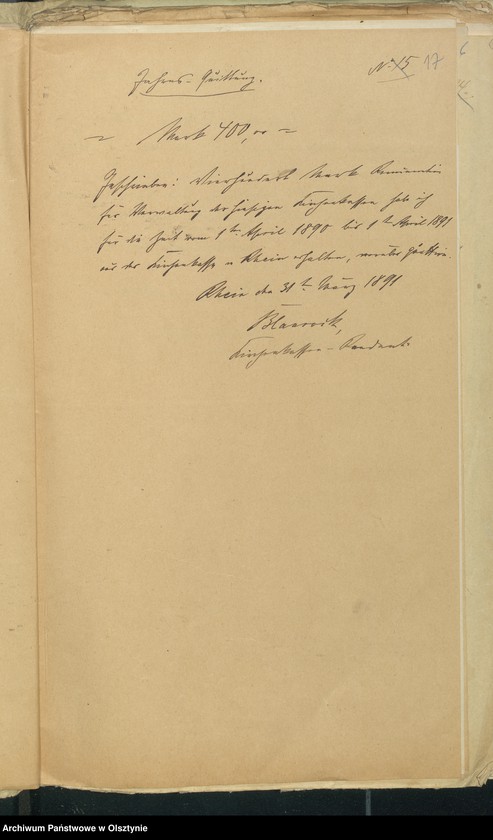 No 15 17
Jahres-Quittung.
= Mark 400,00 =
Geschrieben: Vierhundert Mark Remuneration
für Verwaltung der hiesigen Kirchenkassen habe ich
für die Zeit vom 1ten April 1890 bis 1ten April 1891
aus der Kirchenkasse zu Rhein erhalten, worüber Quittung.
Rhein den 31ten März 1891
Blaurock,
Kirchenkassen-Rendant.
Archiwum Państwowe w Olsztynie